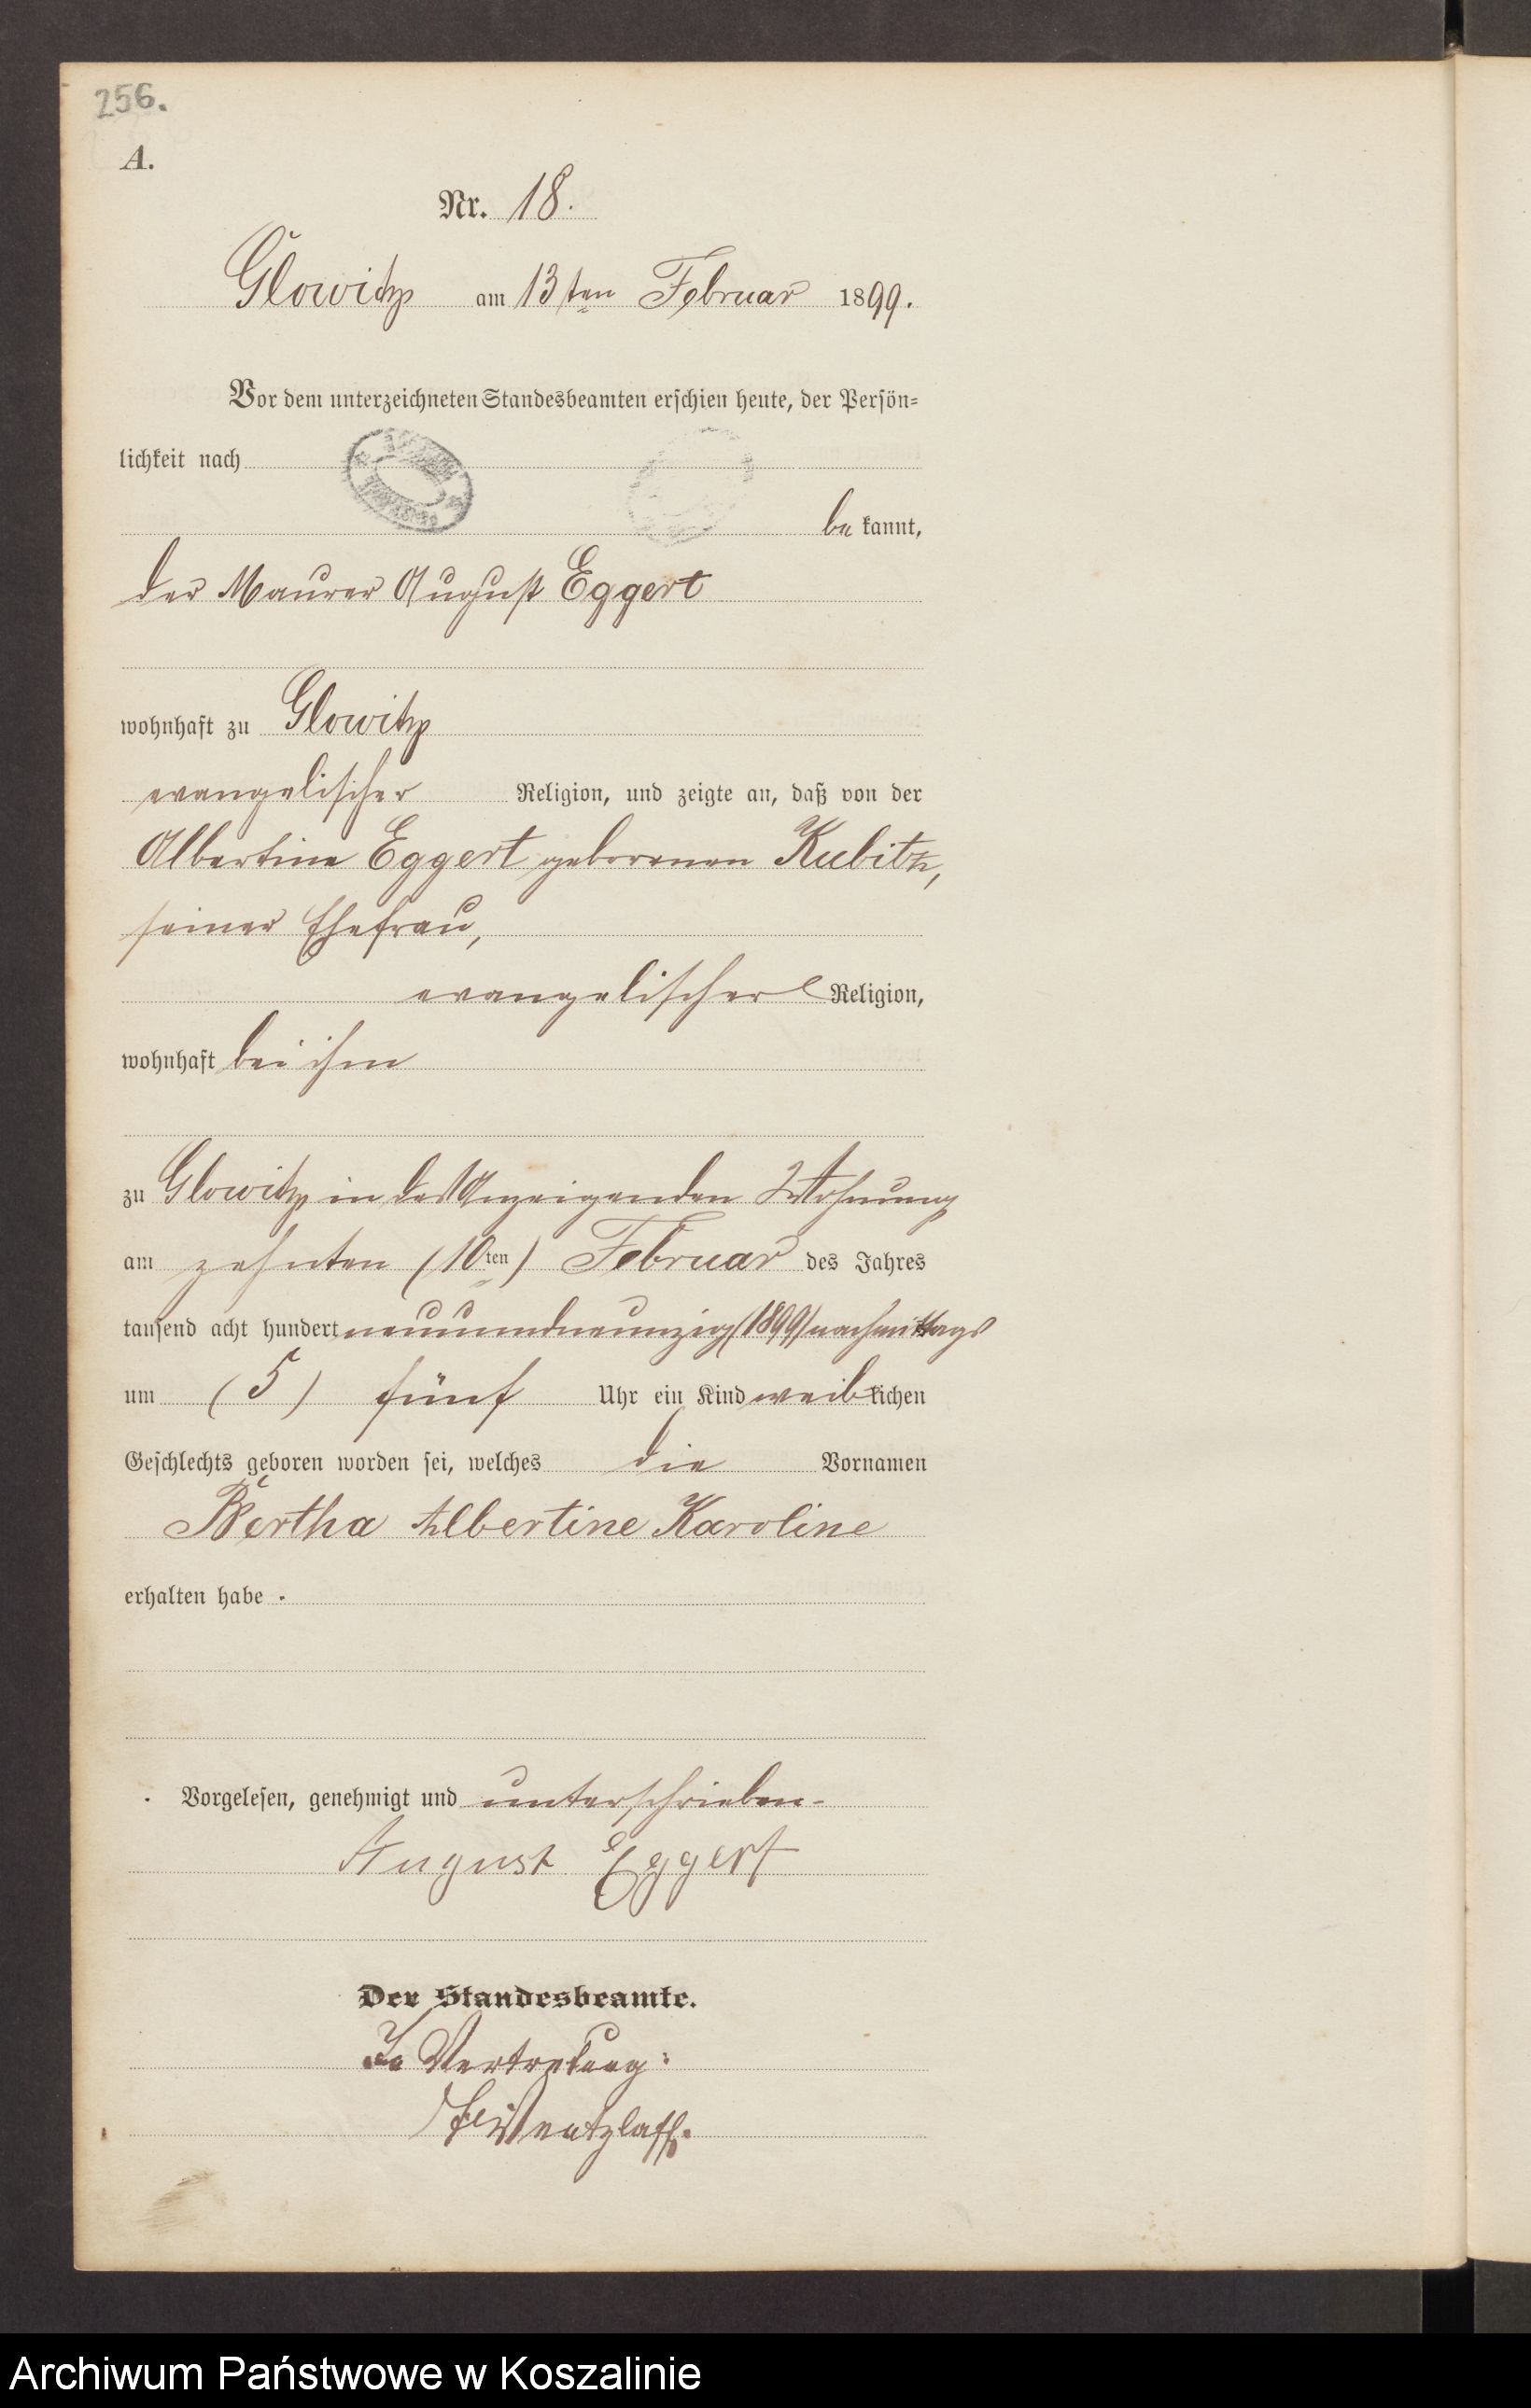 256.
A.
Nr. 18.
Glowitz am 13ten Februar 1899.
Vor dem unterzeichneten Standesbeamten erschien heute, der Persön=
lichkeit nach
be kannt,
der Maurer August Eggert
wohnhaft zu Glowitz
evangelischer Religion, und zeigte an, daß von der
Albertine Eggert geborenen Kubitz,
seiner Ehefrau,
evangelischer Religion,
wohnhaft bei ihm
zu Glowitz in des Anzeigenden Wohnung
am zehnten (10ten) Februar des Jahres
tausend acht hundert neunundneunzig (1899) nachmittags
um (5) fünf Uhr ein Kind weiblichen
Geschlechts geboren worden sei, welches die Vornamen
Bertha Albertine Karoline
erhalten habe.
Vorgelesen, genehmigt und unterschrieben.
August Eggert
Der Standesbeamte.
In Vertretung:
Wentzlaff.
Archiwum Państwowe w Koszalinie